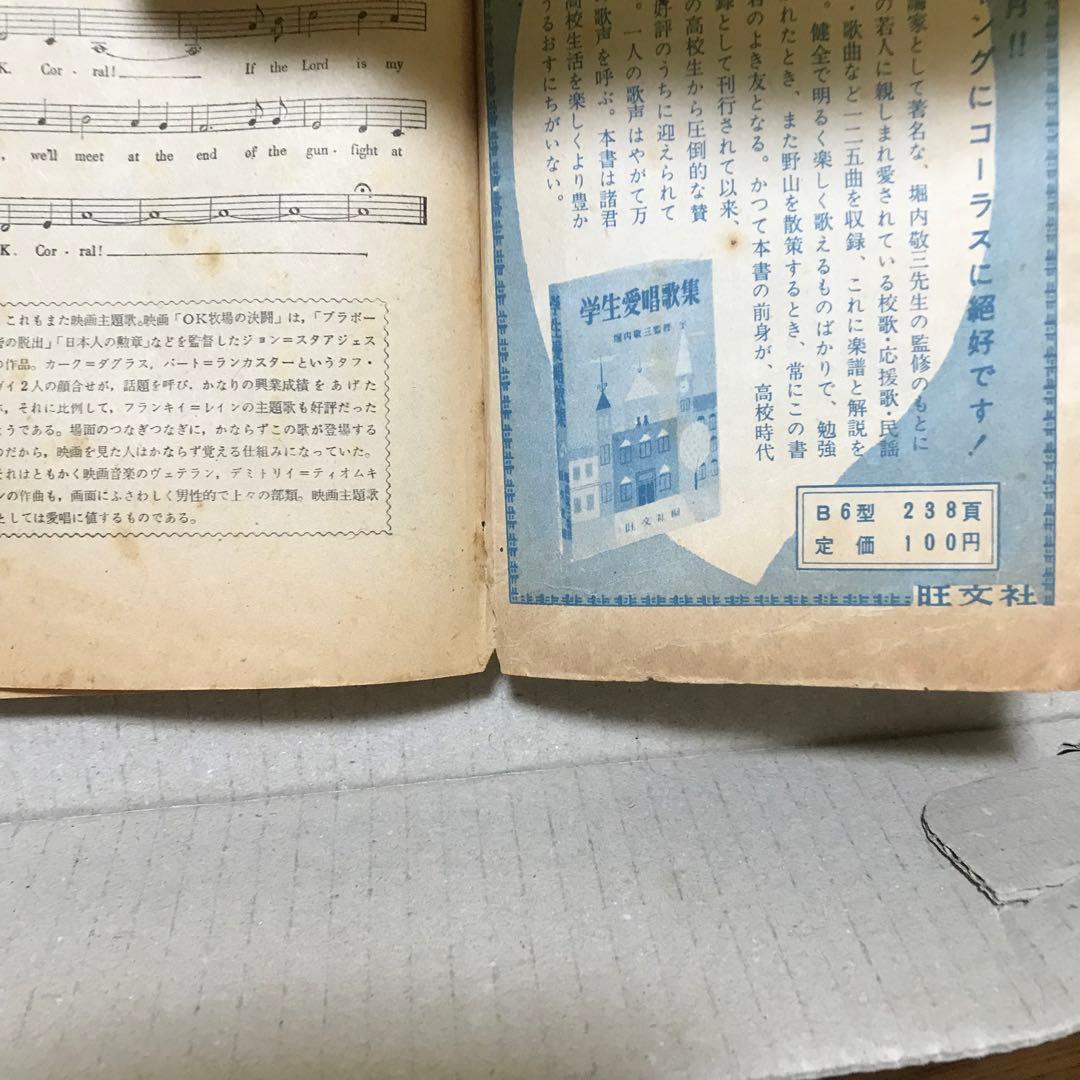 K. Cor - ral! If the Lord is my
we'll meet at the end of the gun - fight at
K. Cor - ral!
これもまた映画主題歌。映画「OK牧場の決闘」は，「ブラボー
の脱出」「日本人の勲章」などを監督したジョン＝スタアジェス
の作品。カーク＝ダグラス，バート＝ランカスターというタフ・
ガイ2人の顔合せが，話題を呼び，かなりの興業成績をあげた
が，それに比例して，フランキイ＝レインの主題歌も好評だった
ようである。場面のつなぎつなぎに，かならずこの歌が登場する
のだから，映画を見た人はかならず覚える仕組みになっていた。
それはともかく映画音楽のヴェテラン，デミトリイ＝ティオムキ
ンの作曲も，画面にふさわしく男性的で上々の部類。映画主題歌
としては愛唱に値するものである。
月!!
ングにコーラスに絶好です！
論家として著名な、堀内敬三先生の監修のもとに
の若人に親しまれ愛されている校歌・応援歌・民謡
・歌曲など一二五曲を収録、これに楽譜と解説を
。健全で明るく楽しく歌えるものばかりで、勉強
れたとき、また野山を散策するとき、常にこの書
君のよき友となる。かつて本書の前身が、高校時代
録として刊行されて以来、
の高校生から圧倒的な賛
好評のうちに迎えられて
。一人の歌声はやがて万
の歌声を呼ぶ。本書は諸君
高校生活を楽しくより豊か
うるおすにちがいない。
学生愛唱歌集
堀内敬三監修
学生愛唱歌集
旺文社編
B6型 238頁
定価 100円
旺文社